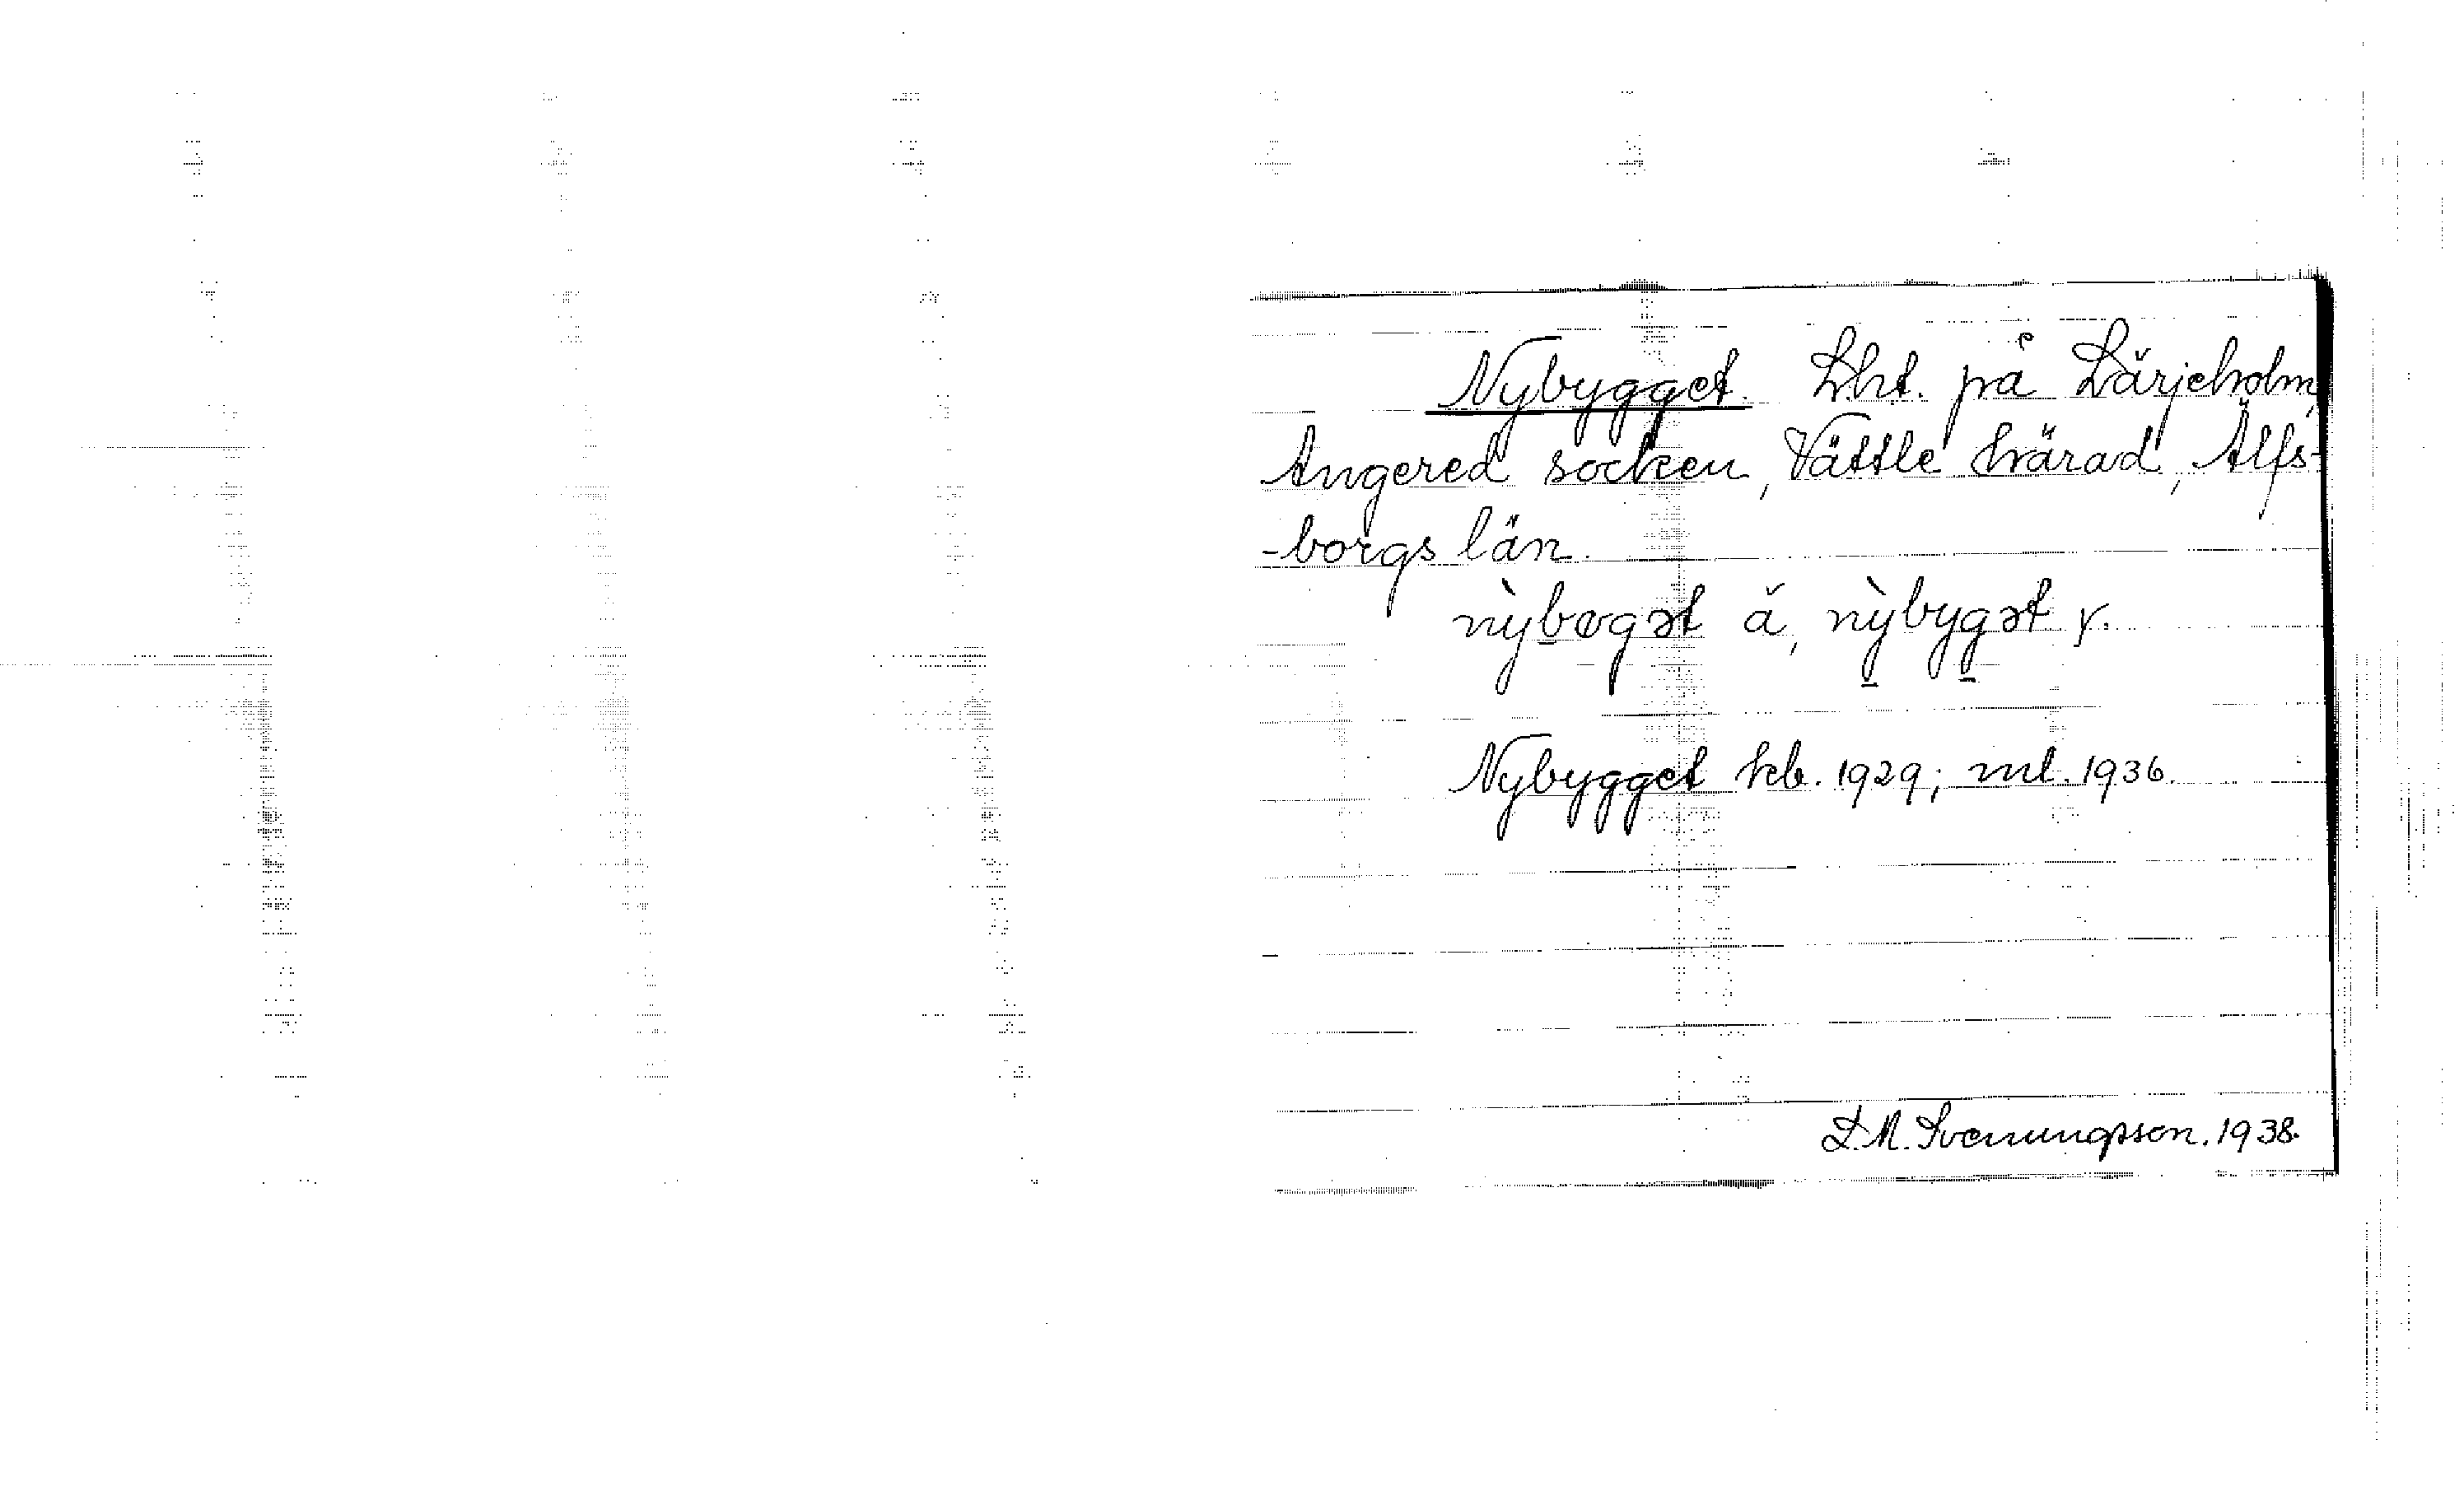 Nybygget. Lht. på Lärjeholm,
Angered socken, Vättle härad, Älfs-
-borgs län.
nỳbøgət ä, nỳbygət y.
Nybygget kb. 1929; ml. 1936.
L.M. Svenungsson. 1938.